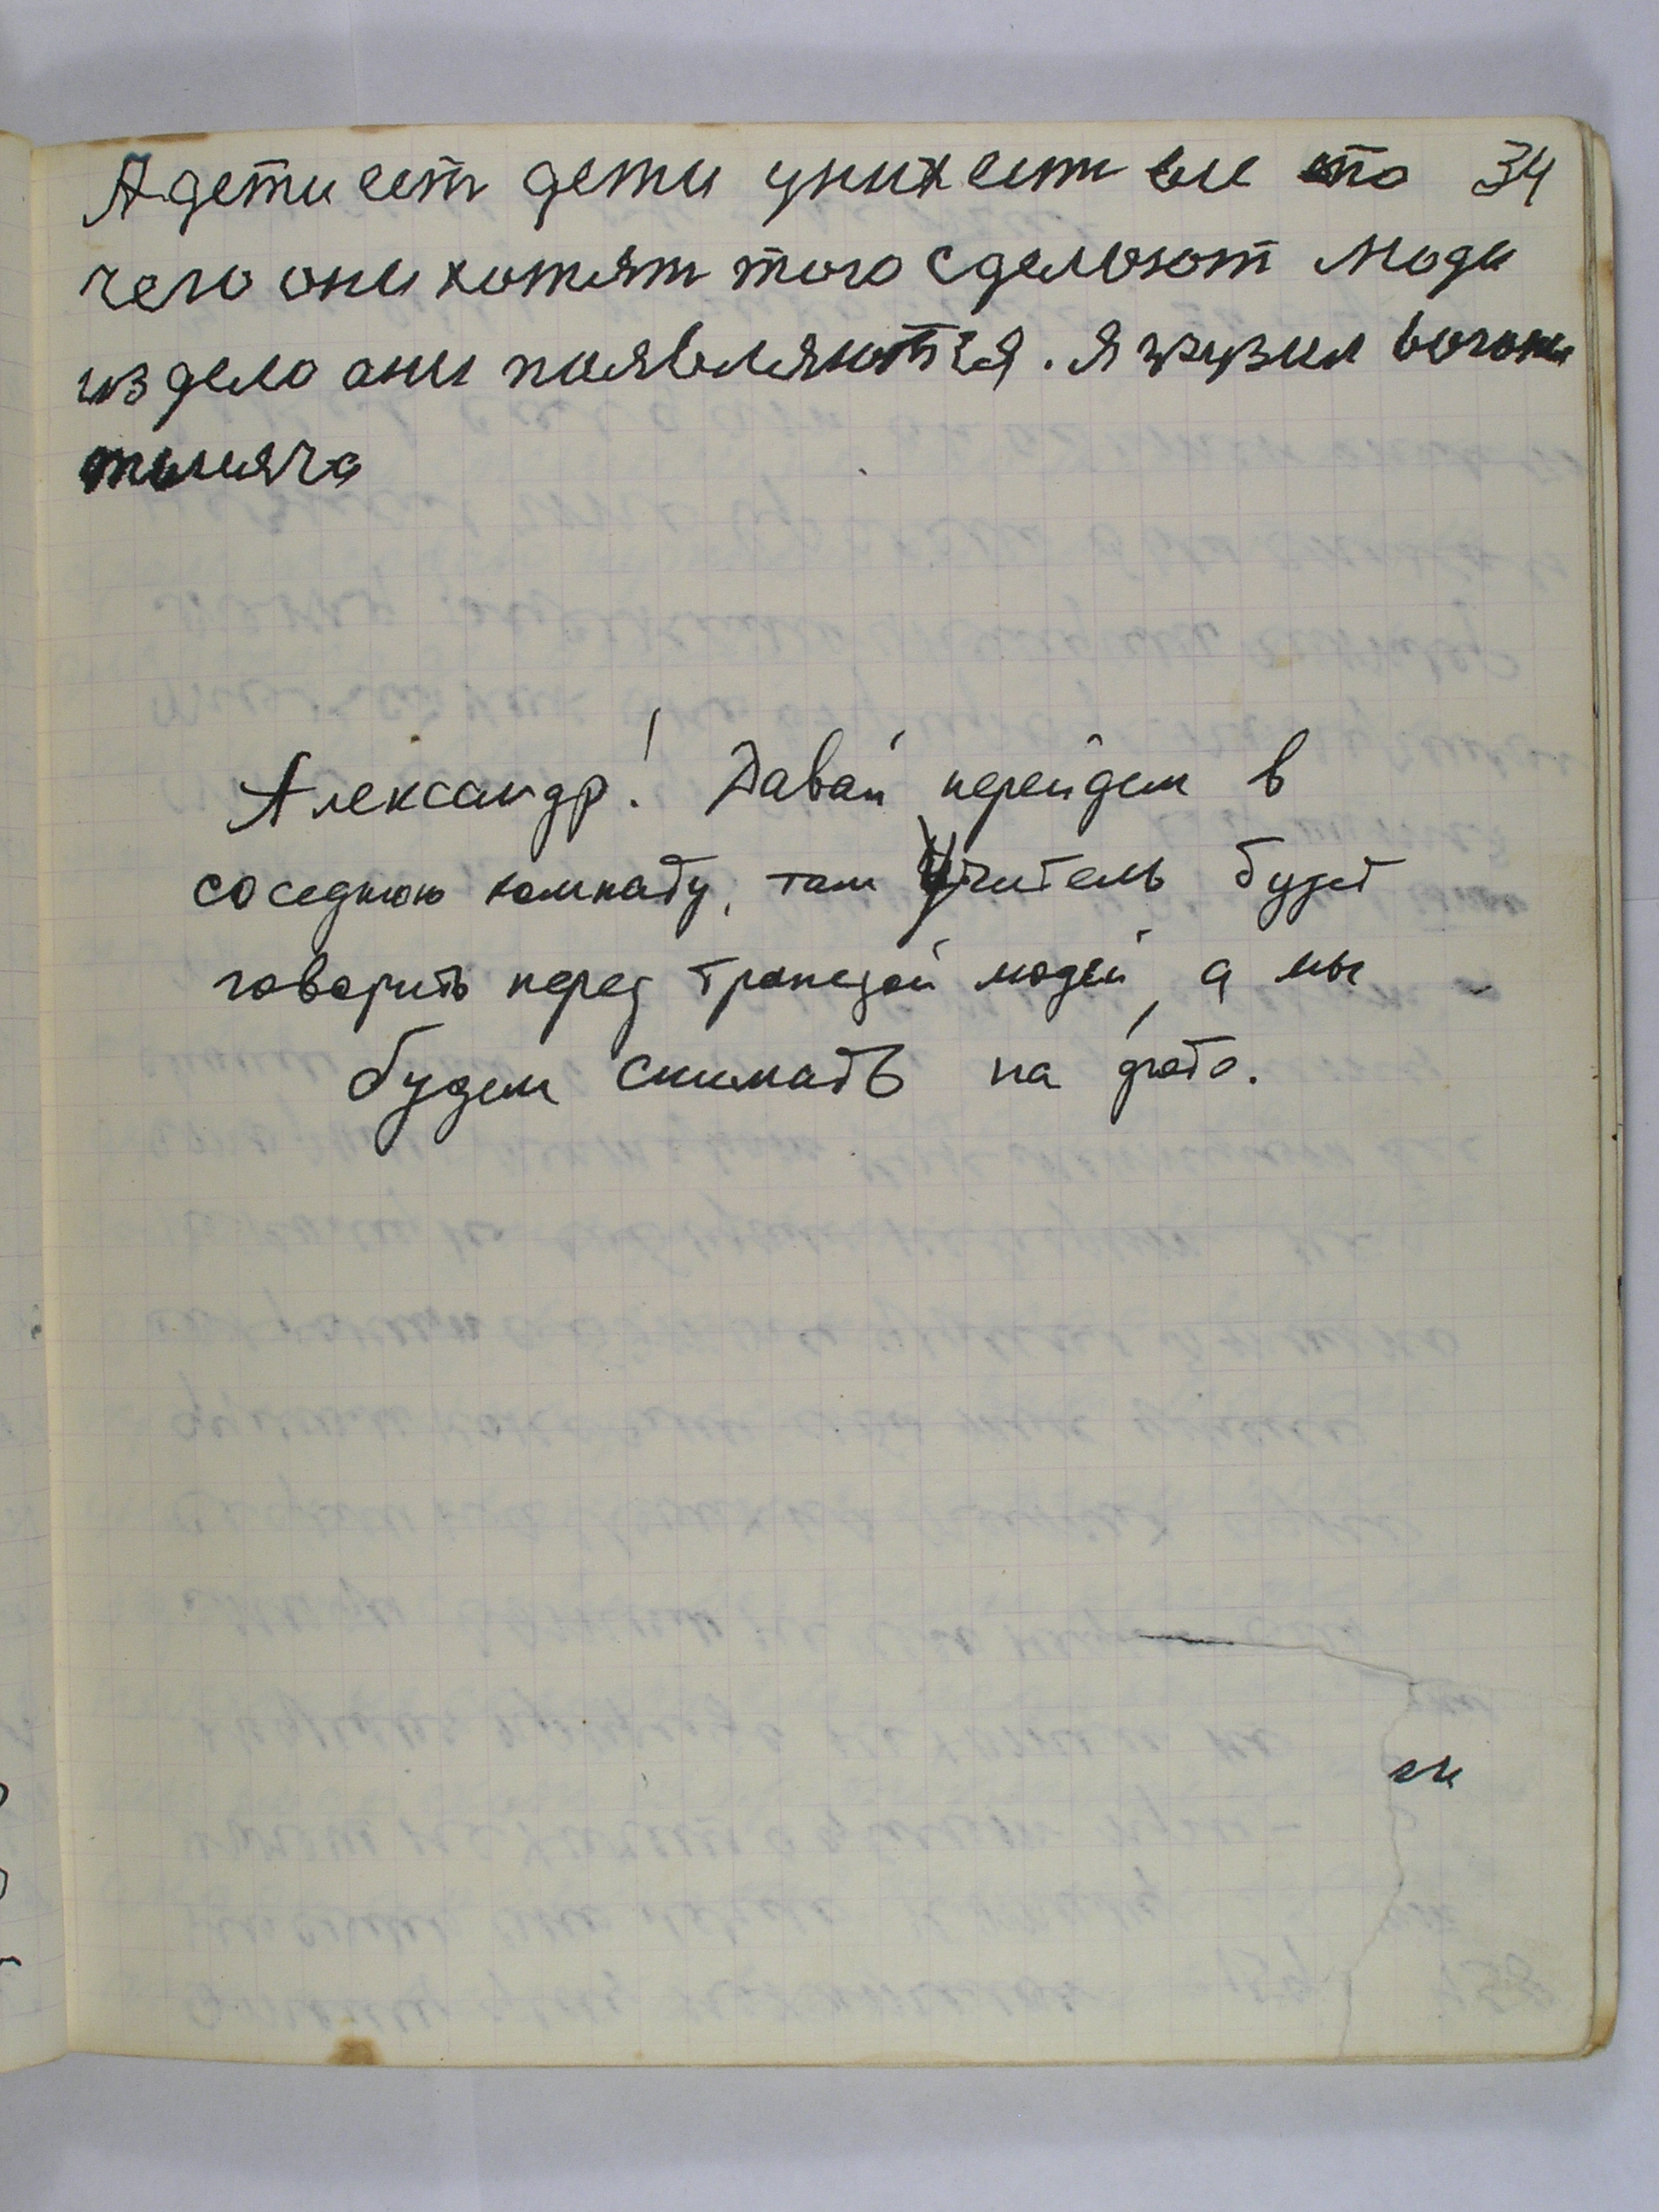 А дети ест дети унихест все это 34
чего они хотят того сделоют люди
из дело они появляются. Я грузил вогоны
тысяча
Александр! Давай перейдем в
соседнюю комнату, там Учитель будет
говорить перед трапезой людей, а мы
будем снимать на фото.